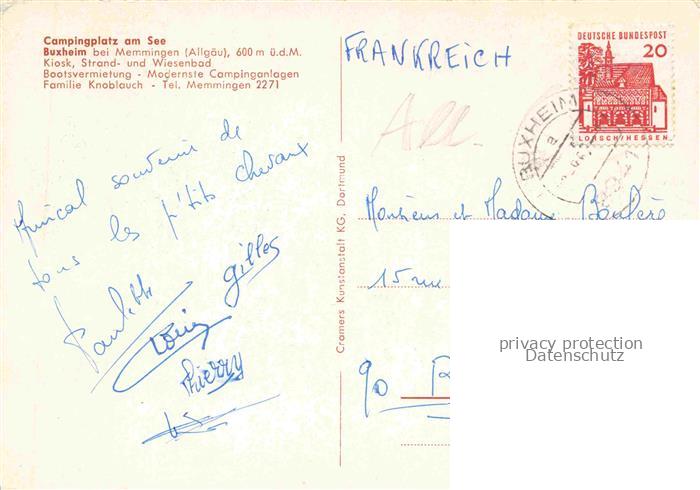 Campingplatz am See
Buxheim bei Memmingen (Allgäu), 600 m ü.d.M.
Kiosk, Strand- und Wiesenbad
Bootsvermietung - Modernste Campinganlagen
Familie Knoblauch - Tel. Memmingen 2271
FRANKREICH
DEUTSCHE BUNDESPOST
20
LORSCH/HESSEN
BUXHEIM
All.
Amical souvenir de
tous les p'tits chevaux
Paulette
Gilles
Thierry
Cramers Kunstanstalt KG, Dortmund
Monsieur et Madame
15 rue
90
privacy protection
Datenschutz